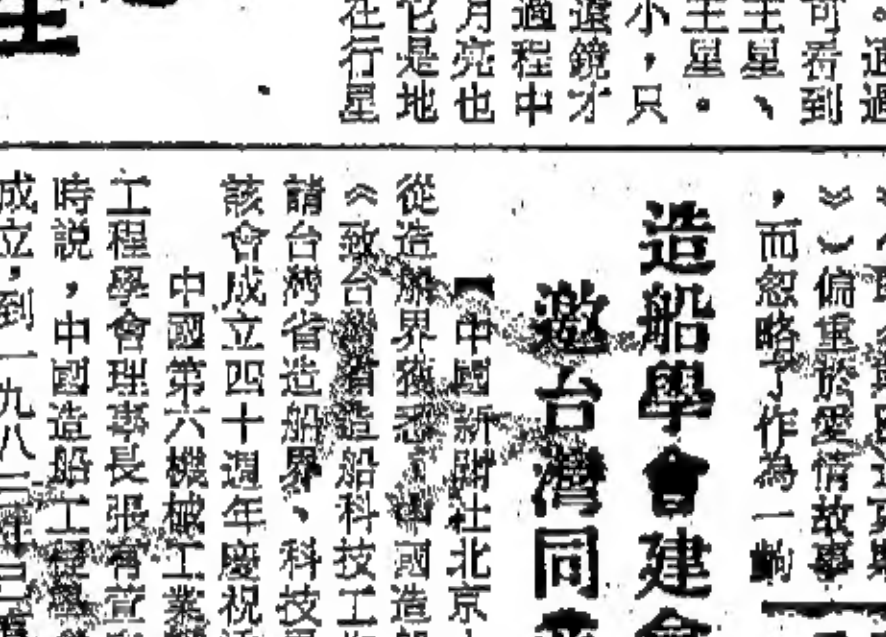 。適過
可看到
王星、
王星。
小，只
遠鏡才
過程中
月亮也
它是地
在行星
》）偏重於愛情故事
，而忽略了作為一齣
造船學會建會
邀台灣同
【中國新聞社北京
從造船界獲悉，中國造船
《致台灣省造船科技工作
請台灣省造船界、科技
該會成立四十週年慶祝
中國第六機械工業
工程學會理事長張有萱
時說，中國造船工程學
成立，到一九八三年已